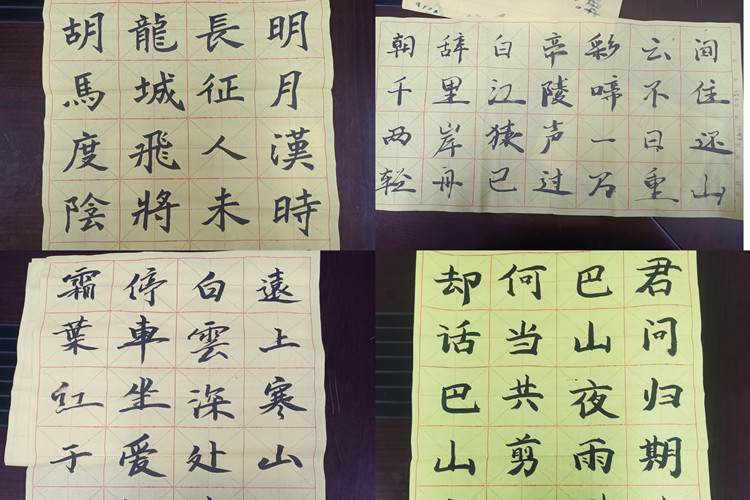 明月漢時
長征人未
龍城飛將
胡馬度陰
朝辞白帝彩云间
千里江陵啼不住
两岸猿声一日还
轻舟已过万重山
遠上寒山
白雲深处
停車坐愛
霜葉红于
君问归期
巴山夜雨
何当共剪
却话巴山